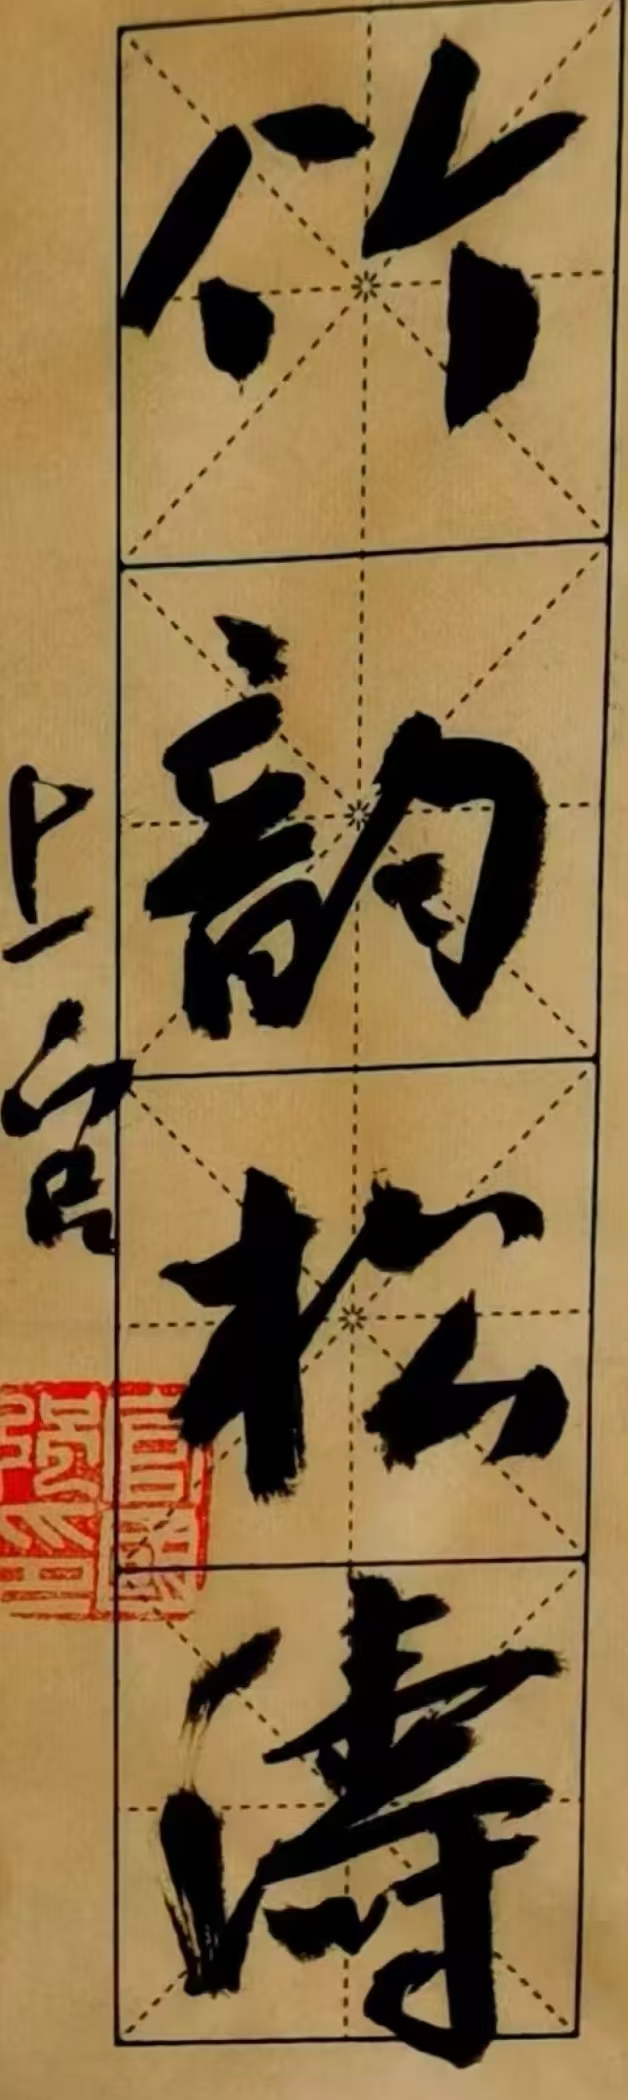 竹韵松涛
上官